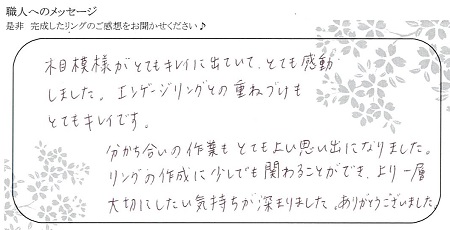 職人へのメッセージ
是非 完成したリングのご感想をお聞かせください♪
木目模様がとてもキレイに出ていて、とても感動
しました。エンゲージリングとの重ねづけも
とてもキレイです。
分かち合いの作業もとてもよい思い出になりました。
リングの作成に少しでも関わることができ、より一層
大切にしたい気持ちが深まりました。ありがとうございました